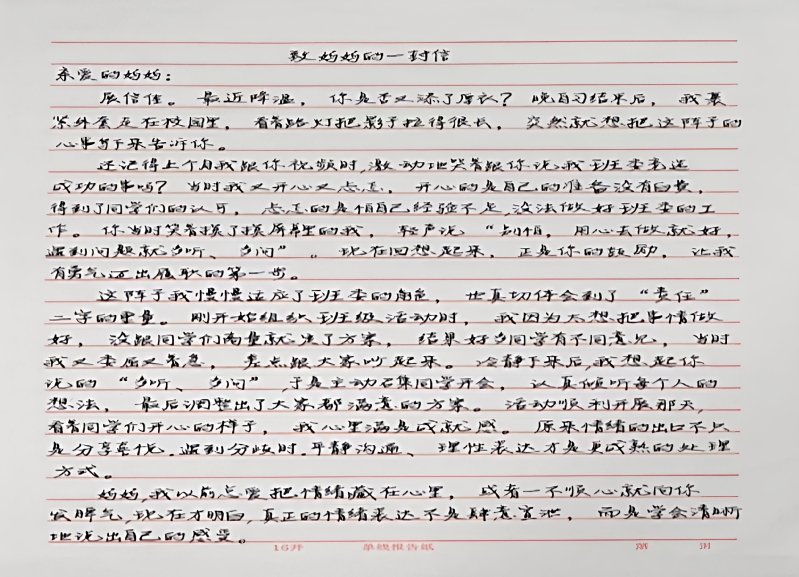 致妈妈的一封信
亲爱的妈妈：
展信佳。最近降温，你是否又添了厚衣？晚自习结束后，我裹
紧外套走在校园里，看着路灯把影子拉得很长，突然就想把这阵子的
心事写下来告诉你。
还记得上个月我跟你视频时，激动地哭着跟你说我班委竞选
成功的事吗？当时我又开心又忐忑，开心的是自己的准备没有白费，
得到了同学们的认可，忐忑的是怕自己经验不足，没法做好班委的工
作。你当时笑着摸了摸屏幕里的我，轻声说“别怕，用心去做就好，
遇到问题就多听、多问”。现在回想起来，正是你的鼓励，让我
有勇气迈出履职的第一步。
这阵子我慢慢适应了班委的角色，也真切体会到了“责任”
二字的重量。刚开始组织班级活动时，我因为太想把事情做
好，没跟同学们商量就定了方案，结果好多同学有不同意见，当时
我又委屈又着急，差点跟大家吵起来。冷静下来后，我想起你
说的“多听、多问”于是主动召集同学开会，认真倾听每个人的
想法，最后调整出了大家都满意的方案。活动顺利开展那天，
看着同学们开心的样子，我心里满是成就感。原来情绪的出口不只
是分享喜悦，遇到分歧时，平静沟通、理性表达才是更成熟的处理
方式。
妈妈，我以前总爱把情绪藏在心里，或者一不顺心就向你
发脾气，现在才明白，真正的情绪表达不是肆意宣泄，而是学会清晰
地说出自己的感受。
16开 单线报告纸 第 页